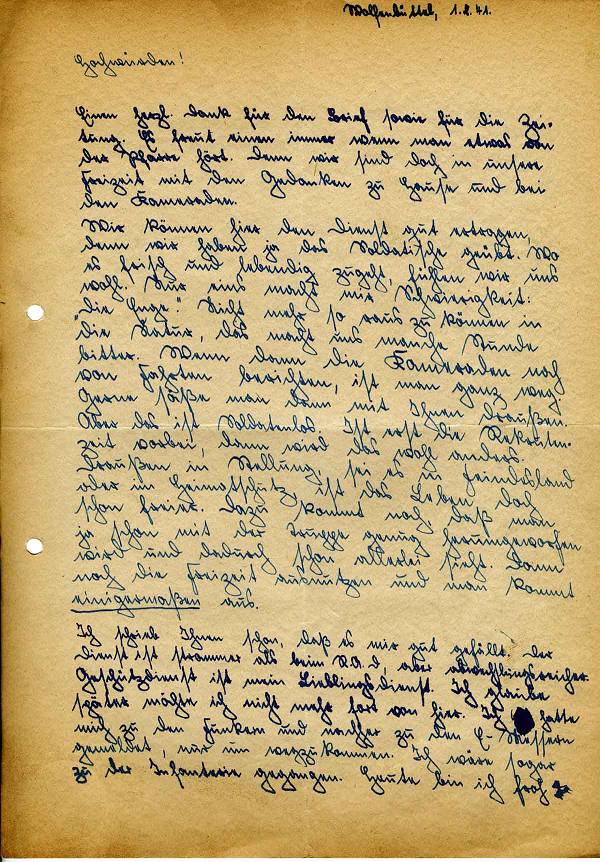 Wolfenbüttel, 1.2.41.
Hochwürden!
Einen herzl. Dank für den Brief sowie für die Zei-
tung. Es freut einen immer wenn man etwas von
der Pfarre hört. Denn wir sind doch in unsere
Freizeit mit den Gedanken zu Hause und bei
den Kameraden.
Wir können hier den Dienst gut ertragen,
denn wir haben ja das Soldatische geübt. Wo
es frisch und lebendig zugeht, fühlen wir uns
wohl. Nur eins macht mir Schwierigkeit:
„die Enge." Nicht mehr so raus zu können in
die Natur, das macht uns manche Stunde
bitter. Wenn dann die Kameraden noch
von Fahrten berichten, ist man ganz weg
Gerne säße man dann mit Ihnen draußen.
Aber das ist Soldatenlos. Ist erst die Rekruten-
zeit vorbei, dann wird das wohl anders.
Draußen in Stellung, sei es in Feindsland
oder im Heimatschutz, ist das Leben doch
schon freier. Dazu kommt noch, daß man
ja schon mit der Truppe genug herumgeworfen
wird und dadurch schon allerlei sieht. Dann
noch die Freizeit ausnutzen und man kommt
einigermaßen aus.
Ich schrieb Ihnen schon, daß es mir gut gefällt. Der
Dienst ist strammer als beim R.A.D, aber abwechlungsreicher
Geschützdienst ist mein Lieblingsdienst. Ich glaube
später möchte ich nicht mehr fort von hier. Ich hatte
mich zu den Funkern und nachher zu den E-Messern
gemeldet, nur um wegzukommen. Ich wäre sogar
zu der Infanterie gegangen. Heute bin ich froh